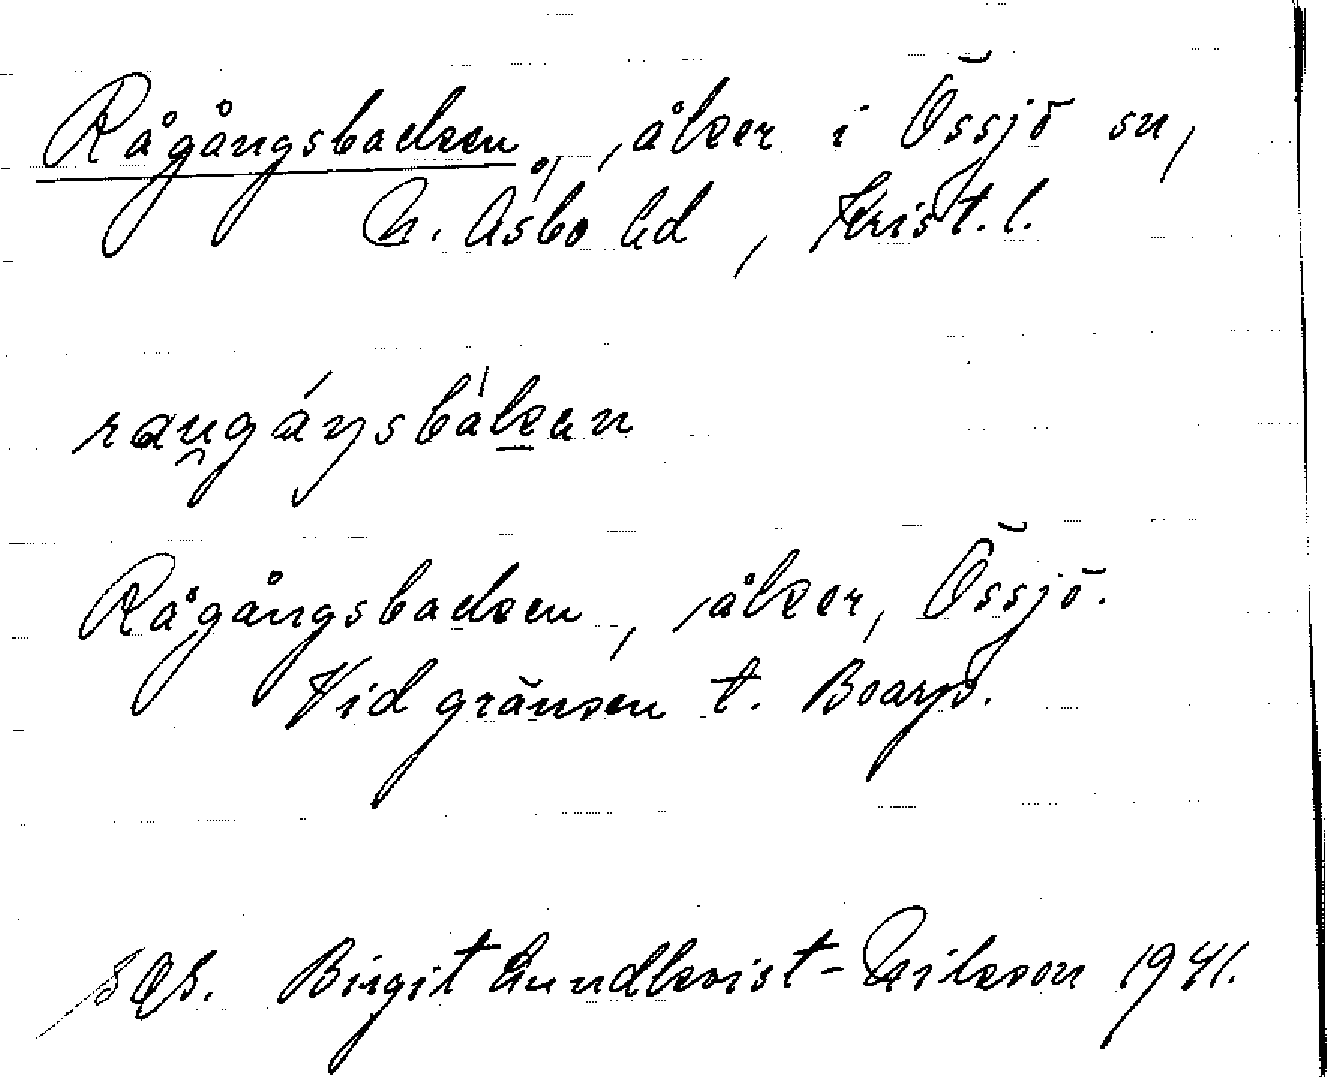 Rågångsbacken, åker i Össjö sn,
N. Åsbo hd, Krist. l.
Rågångsbacken, åker, Össjö.
Vid gränsen t. Boarp.
Birgit Lundkvist-Nilsson 1941.